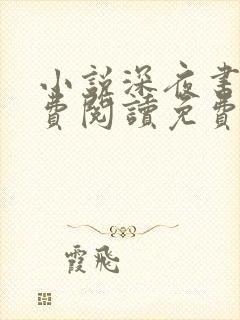 小説深夜書
費閱讀免費
霞飛